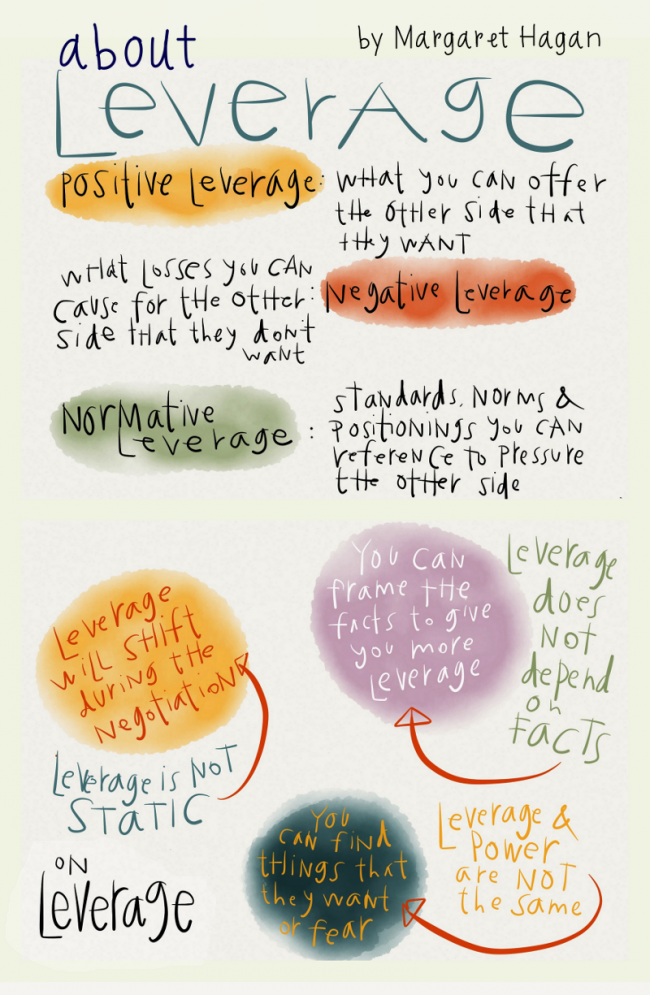 about
by Margaret Hagan
Leverage
Positive Leverage:
what you can offer
the other side that
they want
Negative Leverage
what losses you can
cause for the other:
side that they don't
want
Normative
Leverage :
standards, norms &
positionings you can
reference to pressure
the other side
Leverage
will shift
during the
Negotiation
Leverage is not
static
You can
frame the
facts to give
you more
leverage
Leverage
does
not
depend
on
facts
You
can find
things that
they want
or fear
Leverage &
Power
are not
the same
on
Leverage